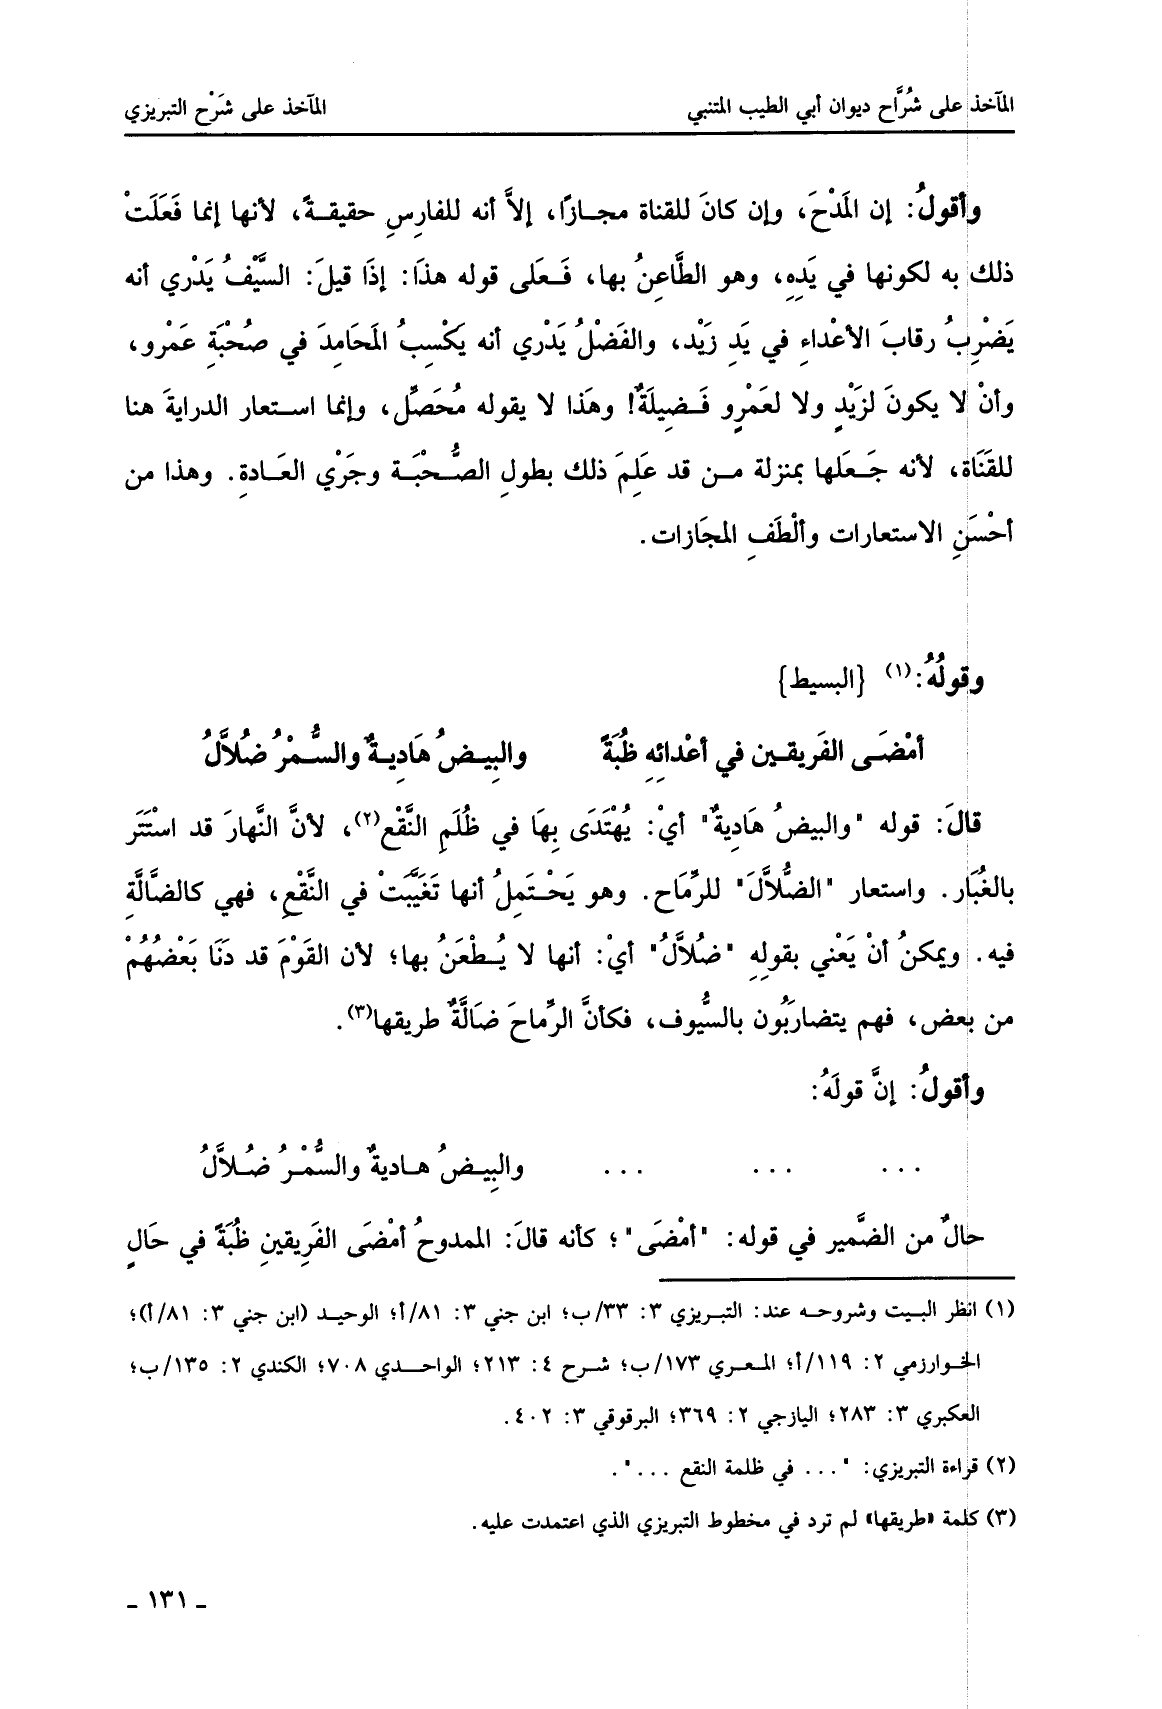 المآخذ على شُرَّاح ديوان أبي الطيب المتنبي
المآخذ على شَرْح التبريزي
وأقولُ: إن المَدْحَ، وإن كانَ للقناة مجازًا، إلاَّ أنه للفارِسِ حقيقةً، لأنها إنما فَعَلَتْ
ذلك به لكونها في يَدِهِ، وهو الطَّاعِنُ بها، فَعَلى قوله هذَا: إذَا قيلَ: السَّيْفُ يَدْري أنه
يَضْرِبُ رقابَ الأعْداءِ في يَدِ زَيْد، والفَضْلُ يَدْري أنه يَكْسِبُ المَحَامِدَ في صُحْبَةِ عَمْرو،
وأنْ لا يكونَ لزَيْدٍ ولا لعَمْرٍو فَضِيلَةٌ! وهَذا لا يقوله مُحَصِّل، وإنما استعار الدرايةَ هنا
للقَنَاة، لأنه جَعَلها بمنزلة من قد عَلِمَ ذلك بطولِ الصُّحْبَة وجَرْي العَادةِ. وهذا من
أحْسَنِ الاستعارات وألْطَفِ المجَازات.
وقولُهُ:(١) {البسيط}
أمْضَى الفَريقين في أعْدائِهِ ظُبَةً والبِيضُ هَادِيةٌ والسُّمْرُ ضُلاَّلُ
قالَ: قوله "والبيضُ هَادِيةٌ" أيْ: يُهْتَدَى بِهَا في ظُلَمِ النَّقْع(٢)، لأنَّ النَّهارَ قد اسْتَتَر
بالغُبَار. واستعار "الضُّلاَّلَ" للرِّمَاح. وهو يَحْتَمِلُ أنها تَغَيَّبَتْ في النَّقْعِ، فهي كالضَّالَّةِ
فيه. ويمكنُ أنْ يَعْني بقولِهِ "ضُلاَّلُ" أيْ: أنها لا يُطْعَنُ بها؛ لأن القَوْمَ قد دَنَا بَعْضُهُمْ
من بعض، فهم يتضارَبُون بالسُّيوف، فكأنَّ الرِّماحَ ضَالَّةٌ طريقها(٣).
وأقولُ: إنَّ قولَهُ:
... ... ... والبِيضُ هاديةٌ والسُّمْرُ ضُلاَّلُ
حالٌ من الضَّمير في قوله: "أمْضَى"؛ كأنه قالَ: الممدوحُ أمْضَى الفَرِيقينِ ظُبَةً في حَالِ
(١) انظر البيت وشروحه عند: التبريزي ٣: ٣٣/ب؛ ابن جني ٣: ٨١/أ؛ الوحيد (ابن جني ٣: ٨١/أ)؛
الخوارزمي ٢: ١١٩/أ؛ المعري ١٧٣/ب؛ شرح ٤: ٢١٣؛ الواحدي ٧٠٨؛ الكندي ٢: ١٣٥/ب؛
العكبري ٣: ٢٨٣؛ اليازجي ٢: ٣٦٩؛ البرقوقي ٣: ٤٠٢.
(٢) قراءة التبريزي: "... في ظلمة النقع ...".
(٣) كلمة «طريقها» لم ترد في مخطوط التبريزي الذي اعتمدت عليه.
ـ ١٣١ ـ